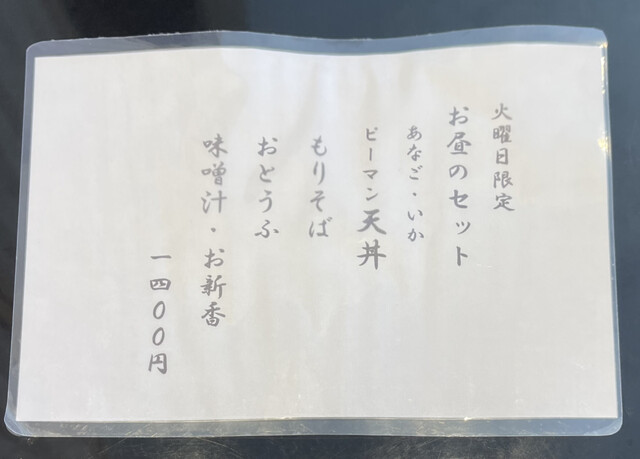 火曜日限定
お昼のセット
あなご・いか
ピーマン天丼
もりそば
おとうふ
味噌汁・お新香
一四００円